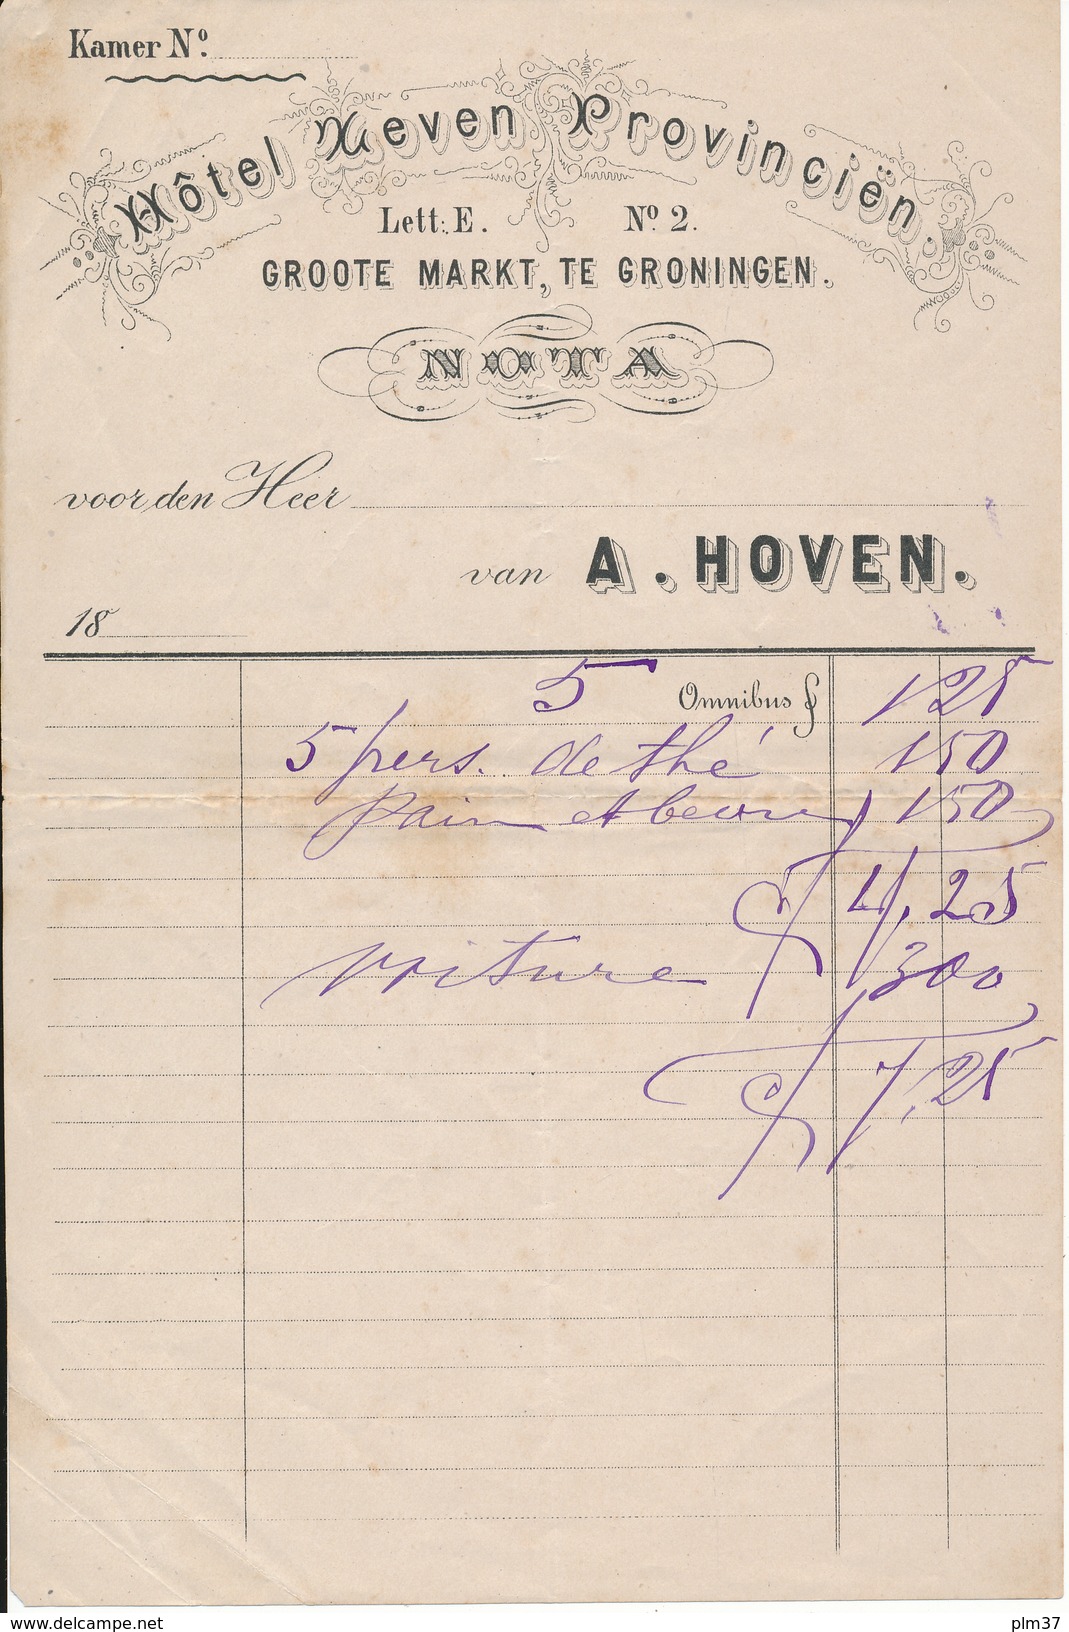 Kamer Nº.
Hôtel Zeven Provinciën.
Lett: E. Nº. 2.
GROOTE MARKT, TE GRONINGEN.
NOTA
voor den Heer
van A. HOVEN.
18
5 Omnibus f 1 25
5 pers. de thé 1 50
pain et beure 1 50
f 4,25
voiture 3 00
f 7,25
www.delcampe.net
plm37